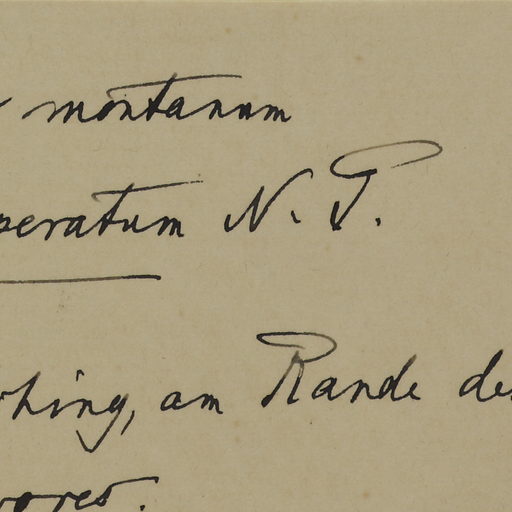 montanum
peratum N. P.
hing, am Rande des